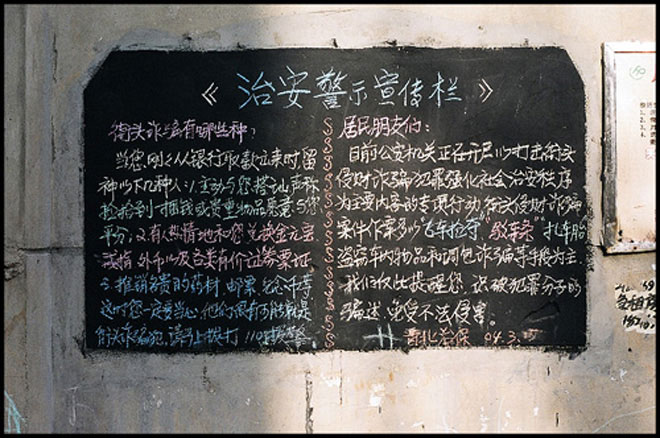 《治安警示宣传栏》
街头诈骗有哪些种?
当您刚刚从银行取款出来时,留
神以下几种人:1.主动与您搭讪声称
捡拾到一捆钱或贵重物品愿意与您
平分,2.有人热情地和您兑换金元宝
戒指 外币以及各类有价证券票证
3.推销名贵的药材 邮票 纪念币等
这时您一定要当心,他们很有可能就是
街头诈骗犯,请马上拨打110报警.
居民朋友们:
目前公安机关正在开展以打击街头
侵财诈骗犯罪强化社会治安秩序
为主要内容的专项行动街头侵财诈骗
案件作案多以"飞车抢夺" 扎车胎
盗窃车内物品和调包诈骗等手段为主.
我们仅此提醒您 识破犯罪分子的
骗述 免受不法侵害.
治保 04.3.